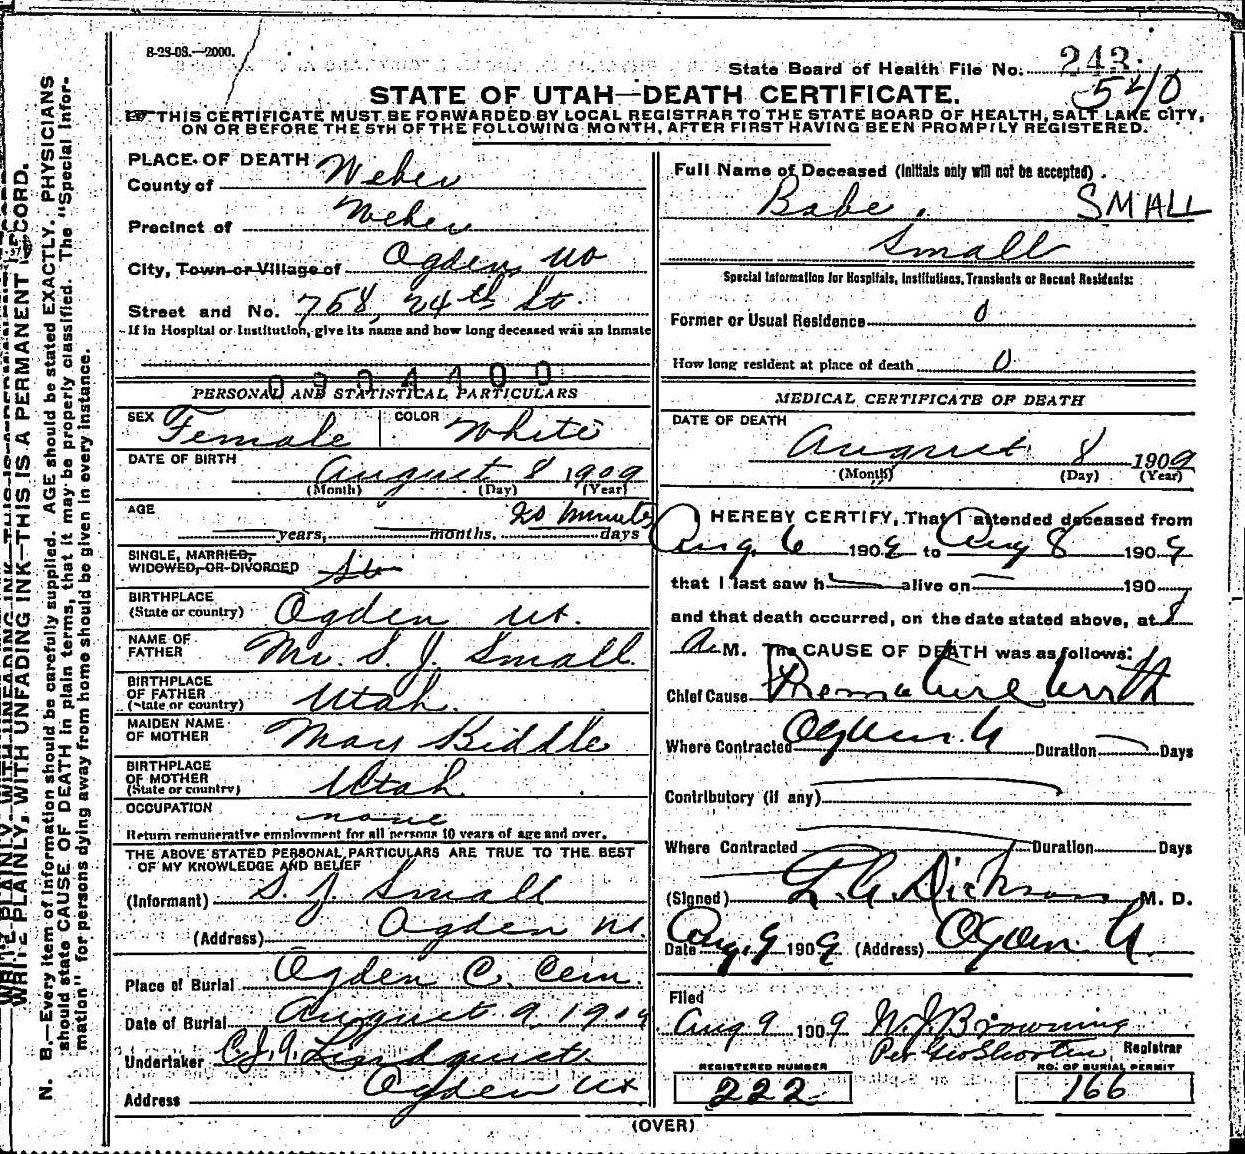 8-23-08.—2000.
State Board of Health File No. 243
540
STATE OF UTAH—DEATH CERTIFICATE.
THIS CERTIFICATE MUST BE FORWARDED BY LOCAL REGISTRAR TO THE STATE BOARD OF HEALTH, SALT LAKE CITY,
ON OR BEFORE THE 5TH OF THE FOLLOWING MONTH, AFTER FIRST HAVING BEEN PROMPILY REGISTERED.
PLACE OF DEATH
County of Weber
Precinct of Weber
City, Town or Village of Ogden, Ut
Street and No. 768, 24th St.
If in Hospital or Institution, give its name and how long deceased was an inmate
PERSONAL AND STATISTICAL PARTICULARS
SEX Female COLOR White
DATE OF BIRTH August 8 1909
(Month) (Day) (Year)
AGE 20 minutes
years, months, days
SINGLE, MARRIED,
WIDOWED, OR DIVORCED
BIRTHPLACE
(State or country) Ogden Ut.
NAME OF
FATHER Mr. S. J. Small
BIRTHPLACE
OF FATHER
(State or country) Utah.
MAIDEN NAME
OF MOTHER Mary Biddle
BIRTHPLACE
OF MOTHER
(State or country) Utah
OCCUPATION none
Return remunerative employment for all persons 10 years of age and over.
THE ABOVE STATED PERSONAL PARTICULARS ARE TRUE TO THE BEST
OF MY KNOWLEDGE AND BELIEF
(Informant) S. J. Small
(Address) Ogden Ut.
Place of Burial Ogden C. Cem.
Date of Burial August 9, 1909
Undertaker C.J.A. Lindquist
Address Ogden Ut
Full Name of Deceased (Initials only will not be accepted).
Babe, SMALL
Small
Special Information for Hospitals, Institutions, Transients or Recent Residents:
Former or Usual Residence 0
How long resident at place of death 0
MEDICAL CERTIFICATE OF DEATH
DATE OF DEATH
August 8 1909
(Month) (Day) (Year)
I HEREBY CERTIFY, That I attended deceased from
Aug. 6 1909 to Aug 8 1909
that I last saw h alive on 190
and that death occurred, on the date stated above, at 8
A. M. The CAUSE OF DEATH was as follows:
Chief Cause Premature birth
Where Contracted Ogden. U Duration Days
Contributory (if any)
Where Contracted Duration Days
(Signed) Dickson M. D.
Date Aug. 9 1909 (Address) Ogden U.
Filed
Aug 9 1909 W. J. Browning
Per Geo Shorten Registrar
REGISTERED NUMBER NO. OF BURIAL PERMIT
222 166
(OVER)
WRITE PLAINLY, WITH UNFADING INK—THIS IS A PERMANENT RECORD.
N. B.—Every item of information should be carefully supplied. AGE should be stated EXACTLY. PHYSICIANS
should state CAUSE OF DEATH in plain terms, that it may be properly classified. The "Special Infor-
mation" for persons dying away from home should be given in every instance.